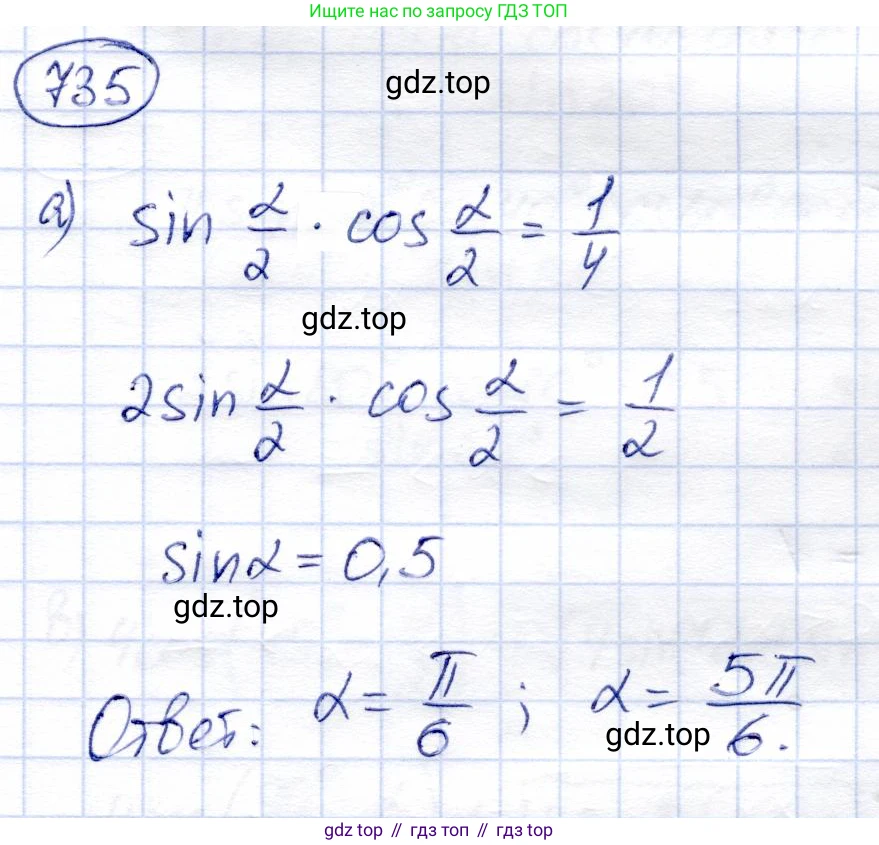 Ищите нас по запросу ГДЗ ТОП
735
gdz.top
а) sin α/2 · cos α/2 = 1/4
gdz.top
2sin α/2 · cos α/2 = 1/2
sinα = 0,5
gdz.top
Ответ: α = π/6 ; α = 5π/6.
gdz.top
gdz top // гдз топ // gdz top